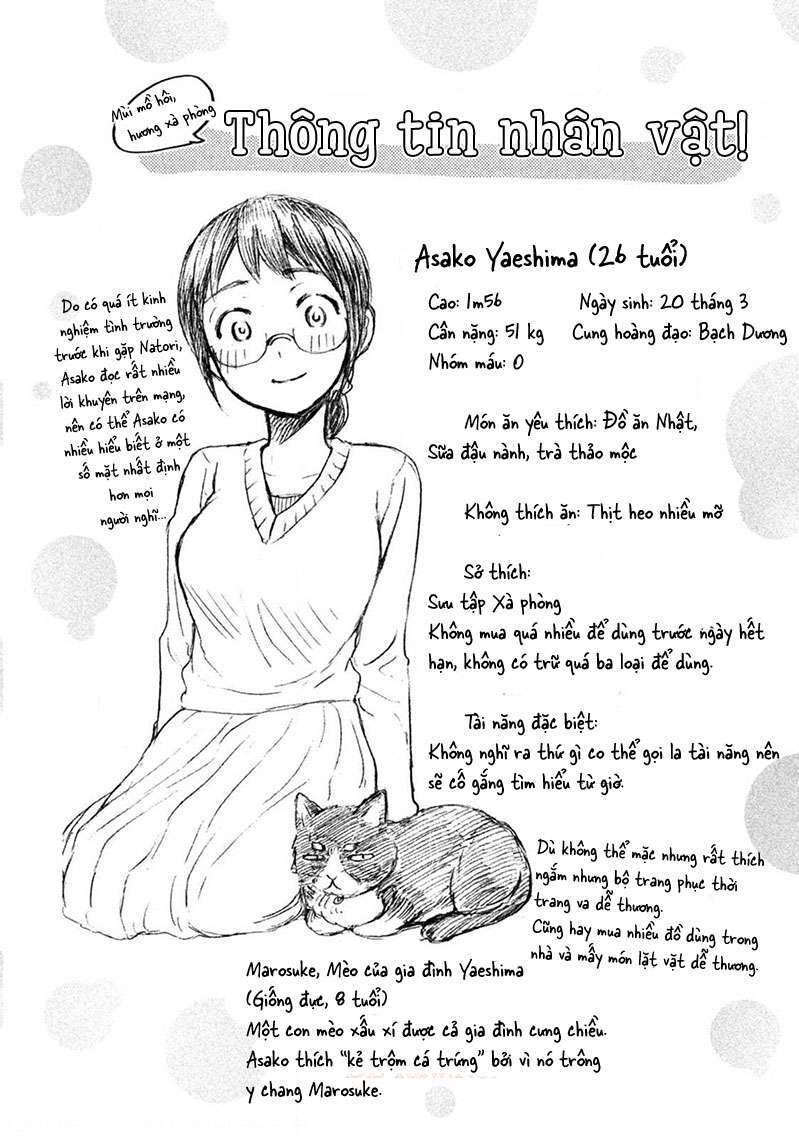 Mùi mồ hôi,
hương xà phòng
Thông tin nhân vật!
Asako Yaeshima (26 tuổi)
Cao: 1m56
Ngày sinh: 20 tháng 3
Cân nặng: 51 kg
Cung hoàng đạo: Bạch Dương
Nhóm máu: O
Do có quá ít kinh
nghiệm tình trường
trước khi gặp Natori,
Asako đọc rất nhiều
lời khuyên trên mạng,
nên có thể Asako có
nhiều hiểu biết ở một
số mặt nhất định
hơn mọi
người nghĩ...
Món ăn yêu thích: Đồ ăn Nhật,
Sữa đậu nành, trà thảo mộc
Không thích ăn: Thịt heo nhiều mỡ
Sở thích:
Sưu tập Xà phòng
Không mua quá nhiều để dùng trước ngày hết
hạn, không có trữ quá ba loại để dùng.
Tài năng đặc biệt:
Không nghĩ ra thứ gì co thể gọi la tài năng nên
sẽ cố gắng tìm hiểu từ giờ.
Dù không thể mặc nhưng rất thích
ngắm nhưng bộ trang phục thời
trang va dễ thương.
Cũng hay mua nhiều đồ dùng trong
nhà và mấy món lặt vặt dễ thương.
Marosuke, Mèo của gia đình Yaeshima
(Giống đực, 8 tuổi)
Một con mèo xấu xí được cả gia đình cưng chiều.
Asako thích "kẻ trộm cá trứng" bởi vì nó trông
y chang Marosuke.